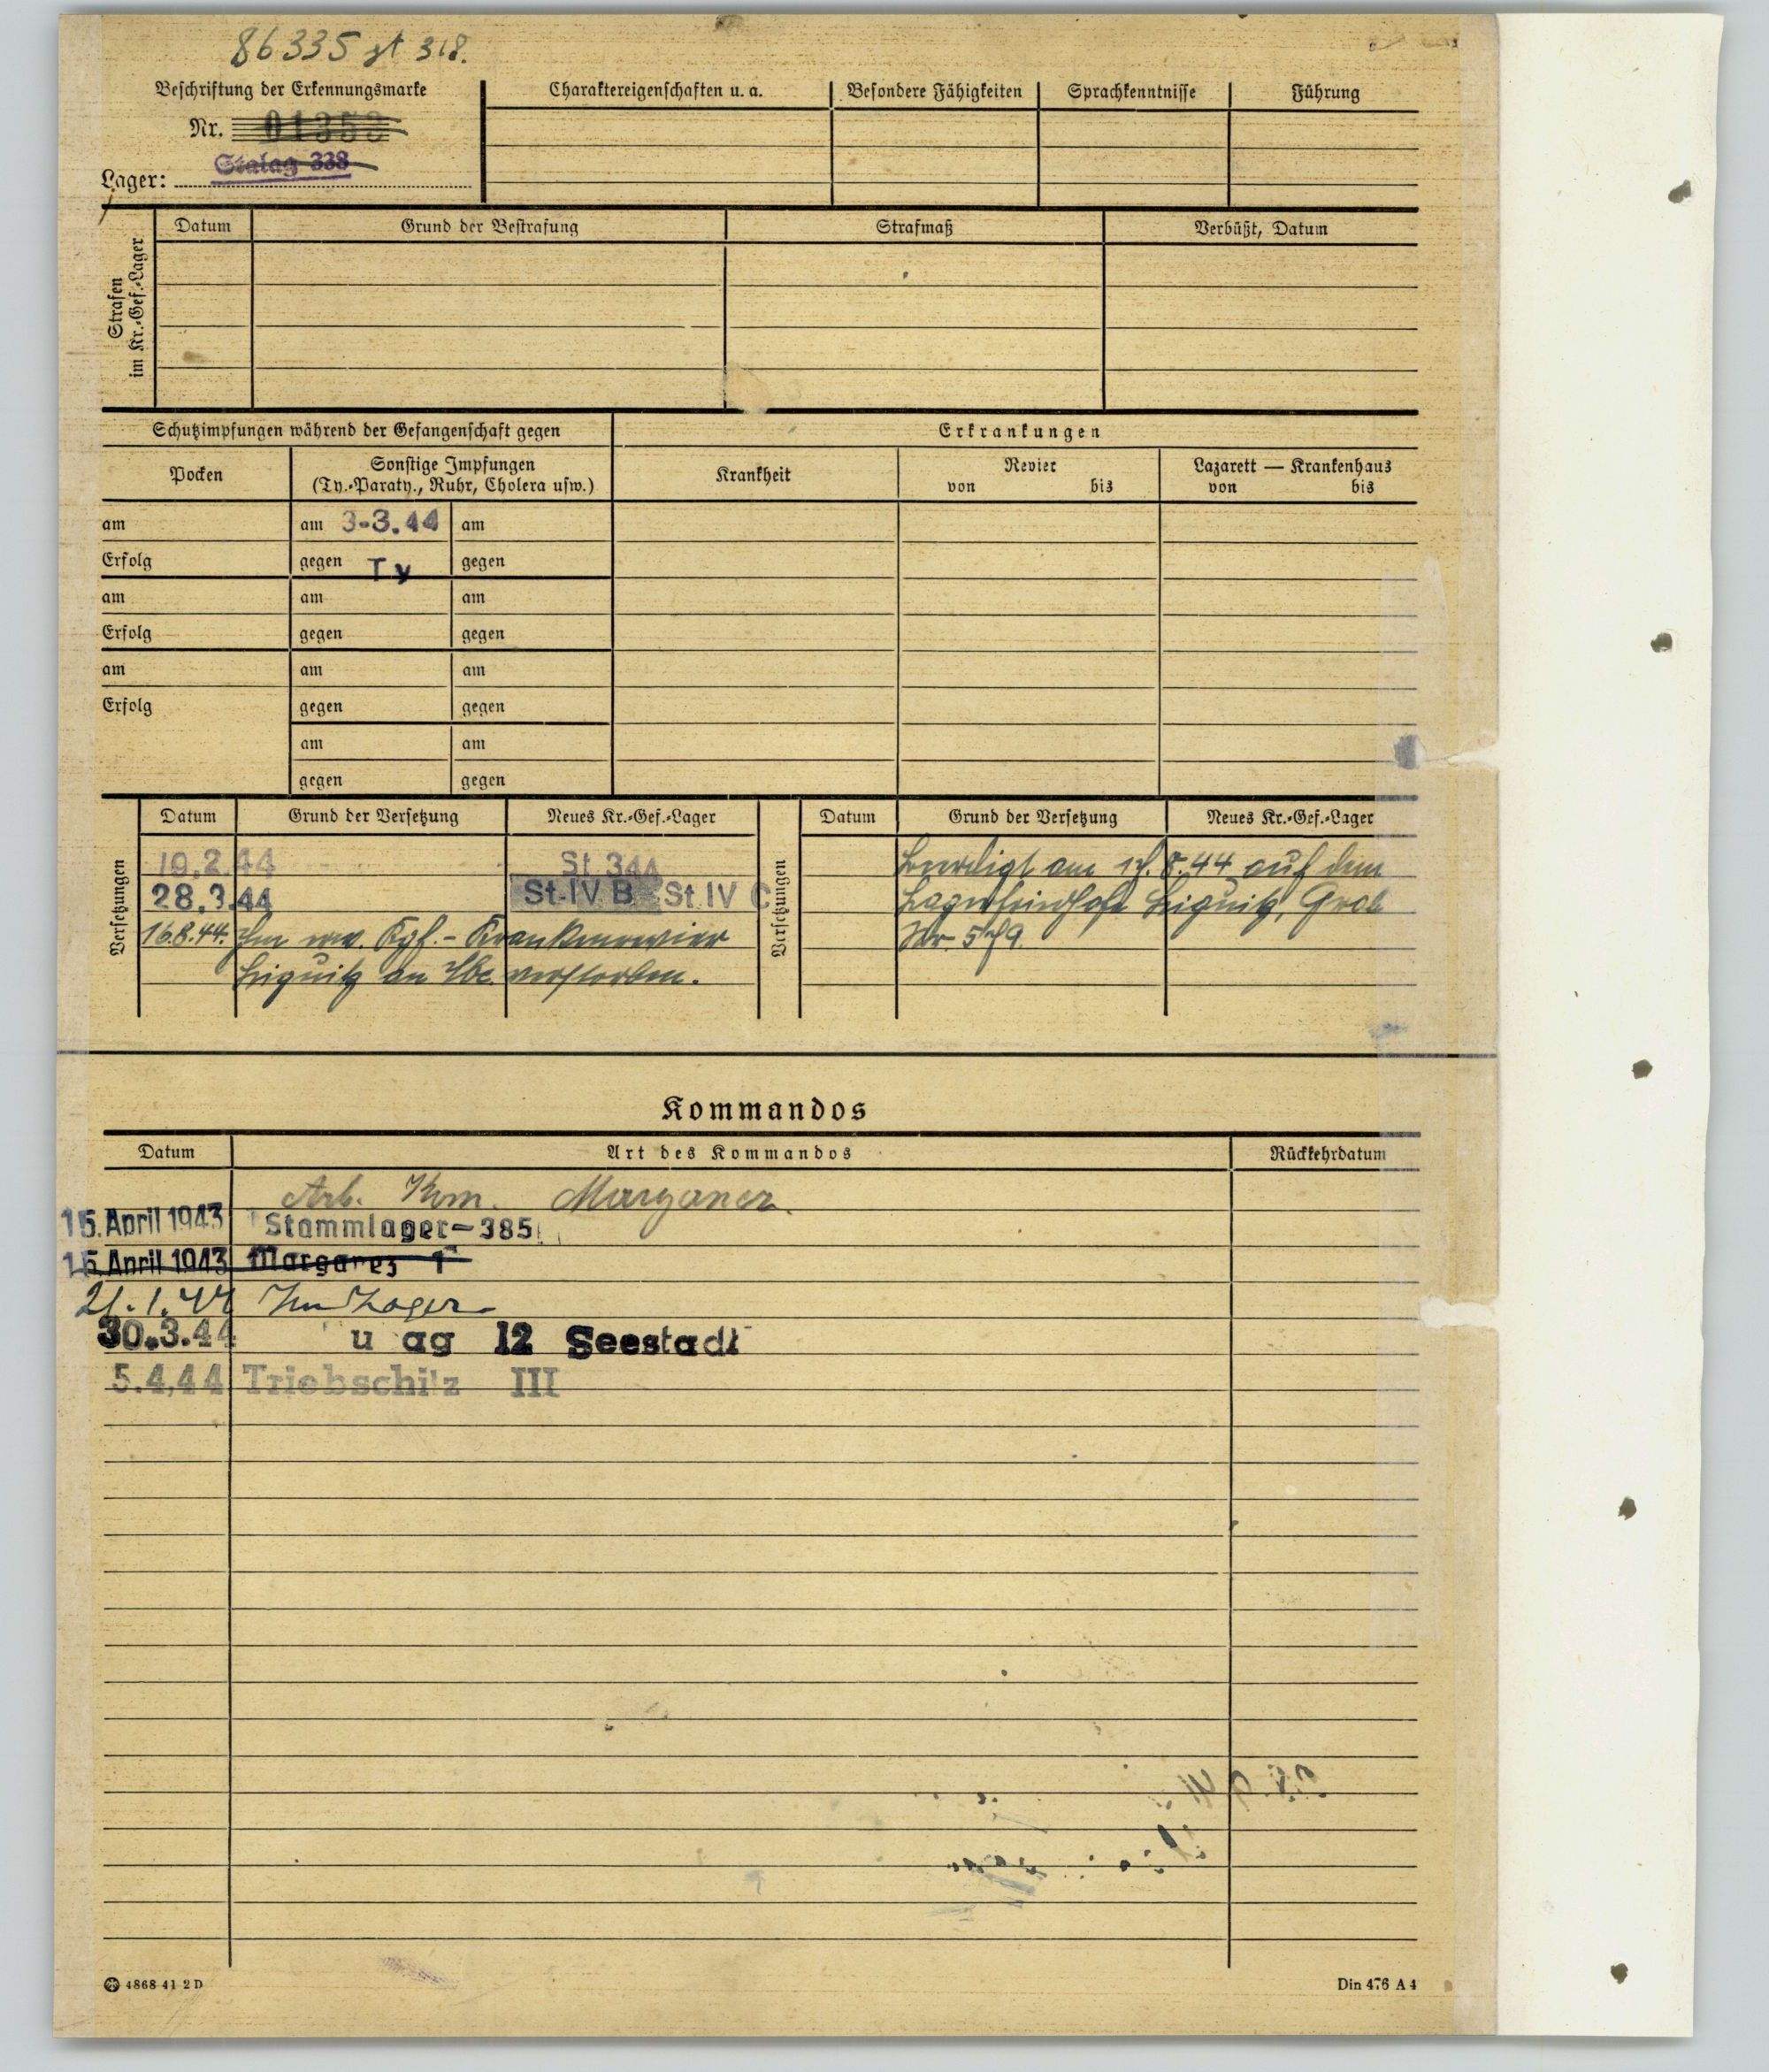 86335 st 318.
Beschriftung der Erkennungsmarke
Nr. 01353
Stalag 338
Lager:
Charaktereigenschaften u. a.
Besondere Fähigkeiten
Sprachkenntnisse
Führung
Strafen
im Kr.-Gef.-Lager
Datum
Grund der Bestrafung
Strafmaß
Verbüßt, Datum
Schutzimpfungen während der Gefangenschaft gegen
Erkrankungen
Pocken
Sonstige Impfungen
(Ty.-Paraty., Ruhr, Cholera usw.)
Krankheit
Revier
von bis
Lazarett — Krankenhaus
von bis
am am 3-3.44 am
Erfolg gegen Ty gegen
am am am
Erfolg gegen gegen
am am am
Erfolg gegen gegen
am am
gegen gegen
Versetzungen
Datum Grund der Versetzung Neues Kr.-Gef.-Lager
19.2.44 St 344
28.3.44 St-IV B St IV C
16.8.44. Im Kgf.-Krankenrevier
an Tbc. verstorben.
Versetzungen
Datum Grund der Versetzung Neues Kr.-Gef.-Lager
Beerdigt am 8.44 auf dem
Lagerfriedhofe Grab
Nr.
Kommandos
Datum Art des Kommandos Rückkehrdatum
Arb. Kom. Marganez.
15. April 1943 Stammlager-385
15 April 1943 Marganez 1
21.1.44 Im Lager
30.3.44 u ag 12 Seestadt
5.4.44 Triebschitz III
4868 41 2 D
Din 476 A 4